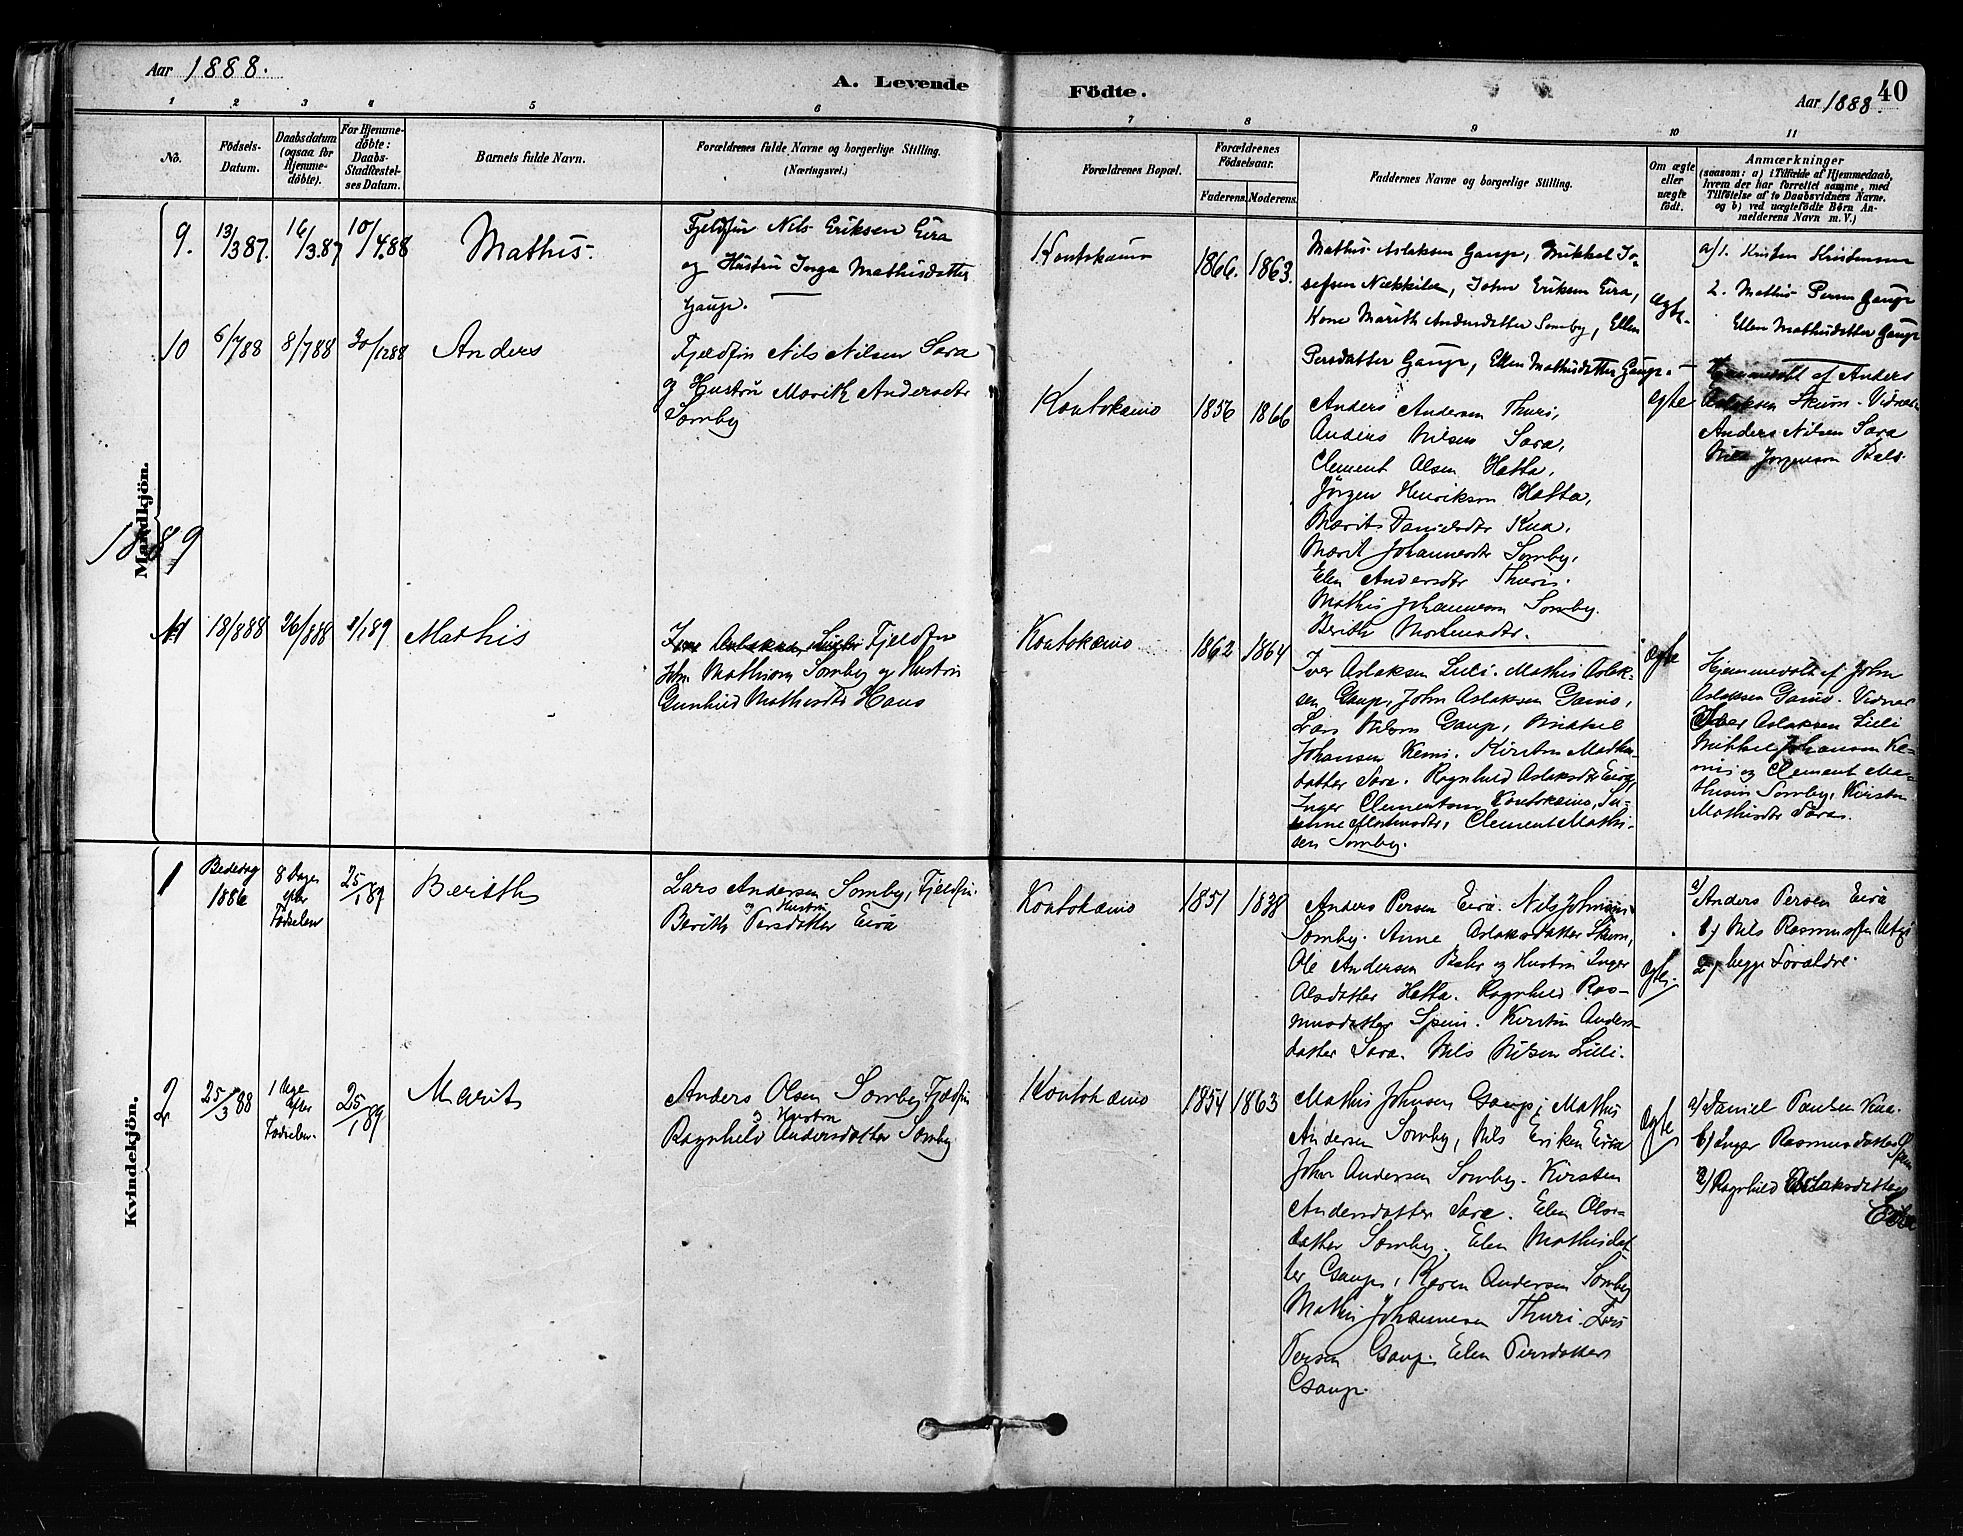 Aar 1888.
A. Levende Födte.
Aar 1888 40
1 2 3 4 5 6 7 8 9 10 11
No.
Födsels-Datum.
Daabsdatum (ogsaa for Hjemme-döbte).
For Hjemme-döbte: Daabs-Stadfæstel-ses Datum.
Barnets fulde Navn.
Forældrenes fulde Navne og borgerlige Stilling. (Næringsvei.)
Forældrenes Bopæl.
Forældrenes Födselsaar.
Faderens. Moderens.
Faddernes Navne og borgerlige Stilling.
Om ægte eller uægte födt.
Anmærkninger
(saasom: a) i Tilfælde af Hjemmedaab,
hvem der har forrettet samme, med
Tilföielse af to Daabsvidners Navne.
og b) ved uægtefödte Börn An-
melderens Navn m. V.)
Mandkjön.
1889
9. 13/3 87. 16/3.87 10/4.88 Mathis.
Fjeldfin Nils Eriksen Eira
og Hustru Inga Mathisdatter
Gaup.
Koutokeino 1866. 1863.
Mathis Aslaksen Gaup, Mikkel Jo-
sefsen Nækkilæ, John Eriksen Eira,
Kone Marith Andersdatter Somby, Ellen
Persdatter Gaup, Ellen Mathisdatter Gaup.
Ægte.
a/1. Kristen Kristensen
2. Mathis Persen Gaup
Ellen Mathisdatter Gaup
10 6/7 88 8/7 88 30/12 88 Anders
Fjeldfin Nils Nilsen Sara
og Hustru Marith Andersdtr
Somby
Koutokeino 1856 1866
Anders Andersen Thuri,
Anders Nilsen Sara,
Clement Olsen Hætta,
Jörgen Henriksen Hætta,
Marit Johannesdtr Somby,
Elen Andersdtr Thuri.
Mathis Johannesen Somby.
Berith Mortensdtr.
Ægte
Hjemmedöbt af Anders
Aslaksen Skum. Vidner
Anders Nilsen Sara
Nils Jörgensen Bals
11 18/8 88 26/8 88 1/1 89 Mathis
Fjeldfin
John Mathisen Somby og Hustru
Gunhild Mathisdtr
Koutokeino 1862 1864
Iver Aslaksen Lulli. Mathis Aslak-
sen Gaup, John Aslaksen Gaino,
Lars Nilsen Gaup, Mikkel
Johansen Kemi. Kirsten Mathis-
datter Sara. Ragnhild Aslaksdtr Eira,
Inger Clementsen Koutokeino, Su-
sanne Mortensdtr, Clement Mathi-
sen Somby.
Ægte
Hjemmedöbt af John
Aslaksen Gaino. Vidner
Iver Aslaksen Lulli
Mikkel Johansen Ke-
mi og Clement Ma-
thisen Somby, Kirsten
Mathisdtr Sara.
Kvindekjön.
1 Bededag 1886 8 Dage efter Fødselen 25/1 89 Berith
Lars Andersen Somby, Fjeldfin
og Hustru
Berith Persdatter Eira
Koutokeino 1851 1838
Anders Persen Eira. Nils Johnsen
Somby. Anne Aslaksdatter Skum,
Ole Andersen Bæhr og Hustru Inger
Olsdatter Hætta. Ragnhild Ras-
musdatter Spein. Kirsten Anders-
datter Sara. Nils Nilsen Lulli.
Ægte.
a) Anders Persen Eira
b) Nils Rasmussen Utsi
2) begge Forældre.
2 25/3 88 1 Uge efter Fødselen. 25/1 89 Marit
Anders Olsen Somby, Fjeldfin
og Hustru
Ragnhild Andersdatter Somby
Koutokeino 1854 1863
Mathis Johnsen Gaup, Mathis
Andersen Somby, Nils Eriksen Eira
John Andersen Somby. Kirsten
Andersdatter Sara. Elen Ols-
datter Somby. Elen Mathisdat-
ter Gaup, Karen Andersen Somby
Mathis Johannesen Thuri. Lars
Persen Gaup. Elen Persdatter
Gaup.
Ægte
a) Daniel Paulsen Kua.
b) Inger Rasmusdatter Spein
2) Ragnhild Aslaksdatter
Eira